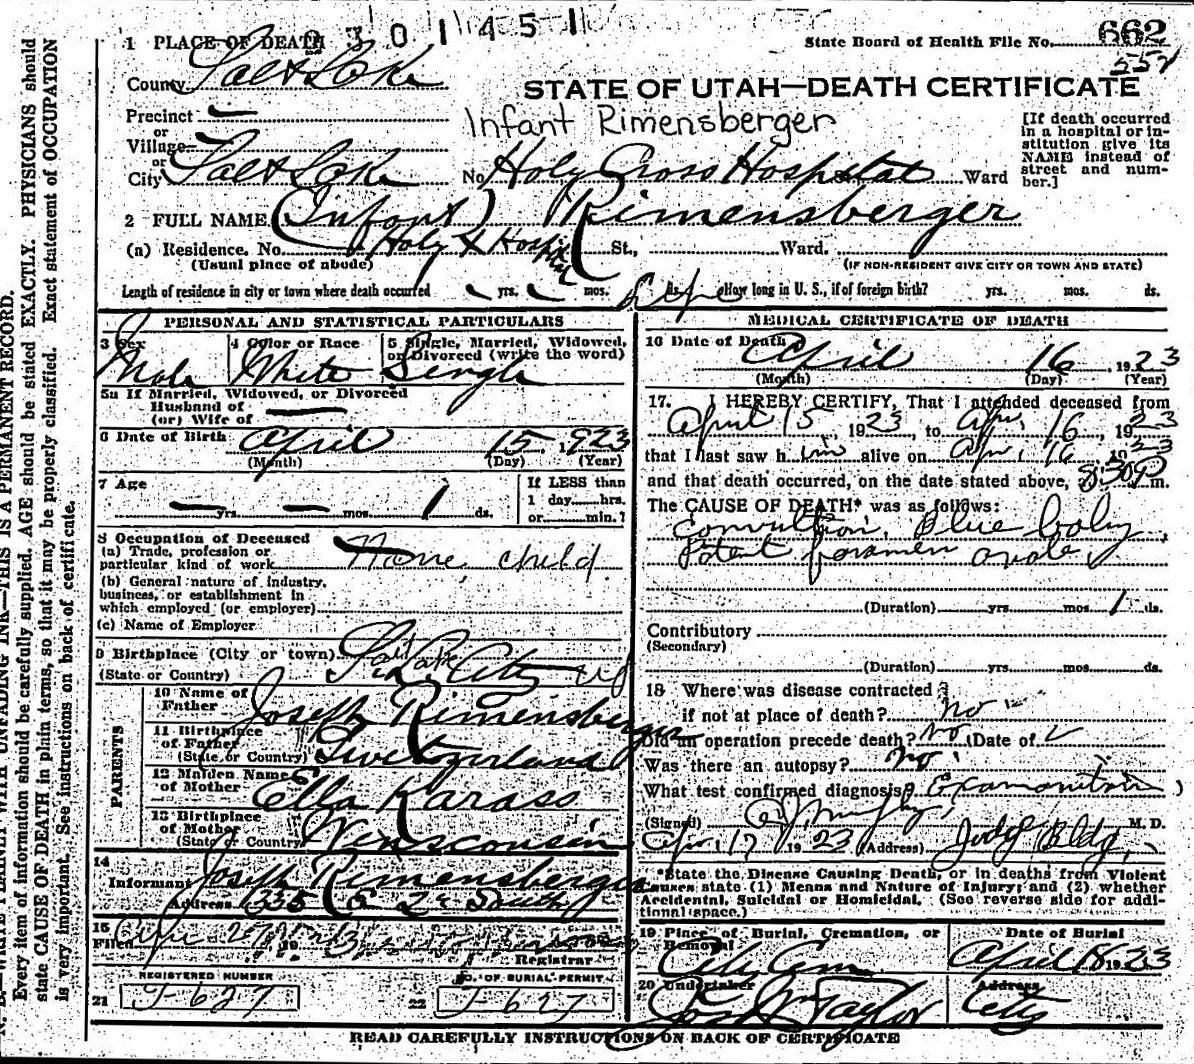 2301451
1 PLACE OF DEATH
State Board of Health File No. 662
County Salt Lake
STATE OF UTAH—DEATH CERTIFICATE
Precinct —
Infant Rimensberger
or
Village
or
City Salt Lake No. Holy Cross Hospital St. Ward
[If death occurred
in a hospital or in-
stitution give its
NAME instead of
street and num-
ber.]
2 FULL NAME (Infant) Rimensberger
(a) Residence. No. Holy X Hospital St., Ward.
(Usual place of abode)
(IF NON-RESIDENT GIVE CITY OR TOWN AND STATE)
Length of residence in city or town where death occurred — yrs. — mos. Life ds. How long in U. S., if of foreign birth? yrs. mos. ds.
PERSONAL AND STATISTICAL PARTICULARS
3 Sex 4 Color or Race 5 Single, Married, Widowed,
or Divorced (write the word)
Male White Single
5a If Married, Widowed, or Divorced
Husband of
(or) Wife of —
6 Date of Birth April 15, 1923
(Month) (Day) (Year)
7 Age
— yrs. — mos. 1 ds.
If LESS than
1 day hrs.
or min.?
8 Occupation of Deceased
(a) Trade, profession or
particular kind of work None, child
(b) General nature of industry,
business, or establishment in
which employed (or employer)
(c) Name of Employer
9 Birthplace (City or town) Salt Lake City
(State or Country)
PARENTS
10 Name of
Father Joseph Rimensberger
11 Birthplace
of Father
(State or Country) Switzerland
12 Maiden Name
of Mother Ella Karass
13 Birthplace
of Mother
(State or Country) Winsconsin
14
Informant Joseph Rimensberger
Address 1335 E 2d South
15
Filed Apr 27 1923
Registrar
REGISTERED NUMBER
21 J-627
NO. OF BURIAL PERMIT
22 J-627
MEDICAL CERTIFICATE OF DEATH
16 Date of Death April 16, 1923
(Month) (Day) (Year)
17. I HEREBY CERTIFY, That I attended deceased from
April 15, 1923, to Apr, 16, 1923
that I last saw him alive on Apr, 16 1923
and that death occurred, on the date stated above, 8:30 P m.
The CAUSE OF DEATH* was as follows:
Convultion, Blue baby,
Patent foramen ovale,
(Duration) yrs. mos. 1 ds.
Contributory
(Secondary)
(Duration) yrs. mos. ds.
18 Where was disease contracted
if not at place of death? no
Did an operation precede death? No (Date of
Was there an autopsy? No
What test confirmed diagnosis? Examanition
(Signed) M. D.
Apr, 17 1923 (Address) Judge Bldg,
*State the Disease Causing Death, or in deaths from Violent
Causes state (1) Means and Nature of Injury; and (2) whether
Accidental, Suicidal or Homicidal. (See reverse side for addi-
tional space.)
19 Place of Burial, Cremation, or
Removal
City Cem
Date of Burial
April 18 1923
20 Undertaker
Jos Wm Taylor
Address
City
READ CAREFULLY INSTRUCTIONS ON BACK OF CERTIFICATE
N. B.—WRITE PLAINLY WITH UNFADING INK—THIS IS A PERMANENT RECORD.
Every item of information should be carefully supplied. AGE should be stated EXACTLY. PHYSICIANS should
state CAUSE OF DEATH in plain terms, so that it may be properly classified. Exact statement of OCCUPATION
is very important. See instructions on back of certificate.